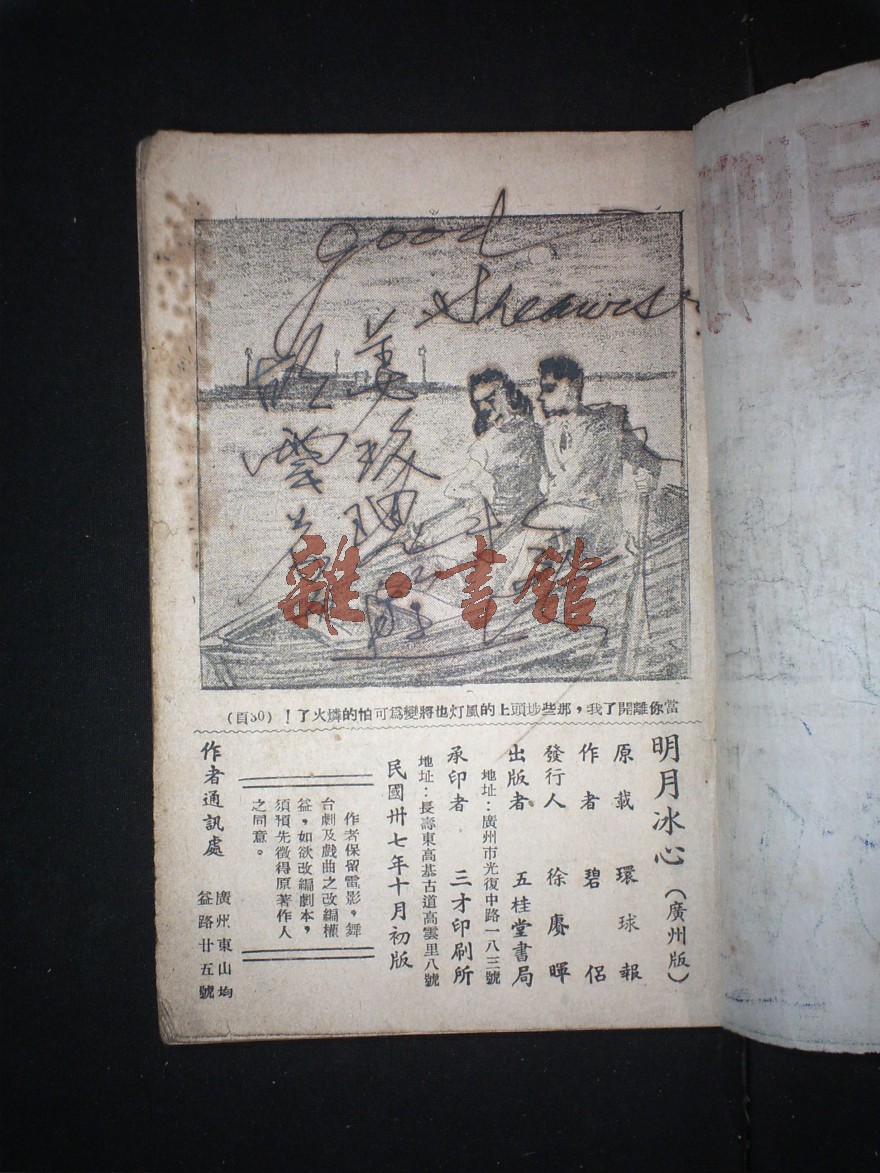 good
當你離開了我，那些埗頭上的風灯也將變爲可怕的燐火了！（30頁）
明月冰心（廣州版）
原載 環球報
作者 碧侶
發行人 徐賡暉
出版者 五桂堂書局
地址：廣州市光復中路一八三號
承印者 三才印刷所
地址：長壽東高基古道高雲里八號
民國卅七年十月初版
作者保留電影，舞
台劇及戲曲之改編權
益，如欲改編劇本，
須預先徵得原著作人
之同意。
作者通訊處 廣州東山均
益路廿五號
雜·書館